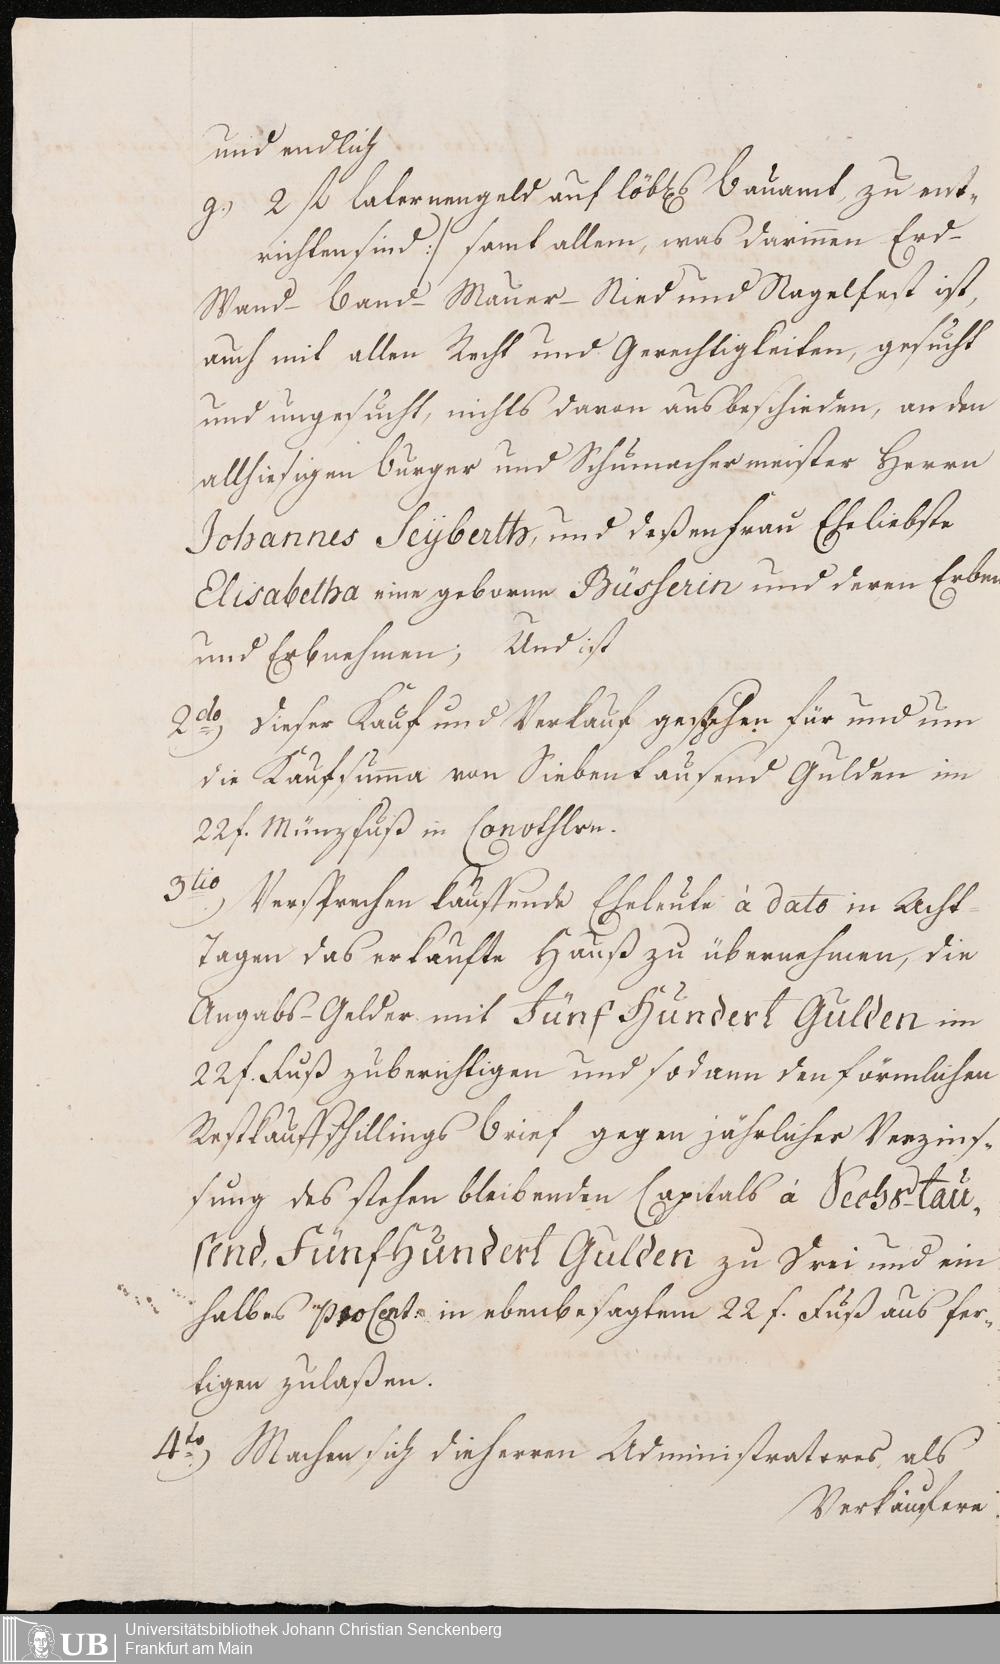 und endlich
g.) 2 fl Laternengeld auf löbl. Bauamt, zu ent-
richten sind :/ samt allem, was darinnen Erd-
Wand- Band- Mauer- Nied und Nagelfest ist,
auch mit allen Recht und Gerechtigkeiten, gesucht
und ungesucht, nichts davon ausbeschieden, an den
allhiesigen Burger und Schumachermeister Herrn
Johannes Seÿberth, und deßen Frau Eheliebste
Elisabetha eine geborne Büsserin und deren Erben
und Erbnehmen; Und ist
2do) dieser Kauf und Verkauf geschehen für und um
die Kaufsum̄a von Siebentausend Gulden im
22f. Münzfuß in Conothlrn.
3tio) Versprechen kauffende Eheleute à dato in Acht
Tagen das erkaufte Hauß zu übernehmen, die
Angabs-Gelder mit Fünf Hundert Gulden im
22f. Fuß zuberichtigen und sodann den förmlichen
Restkauffschillings Brief gegen jährlicher Verzins-
sung des stehen bleibenden Capitals á Sechs-tau-
send, Fünf Hundert Gulden zu Drei und ein
halbes proCent: in ebenbesagtem 22 f. Fuß aus fer-
tigen zulaßen.
4to) Machen sich die Herren Administratores, als
Verkäufere
Universitätsbibliothek Johann Christian Senckenberg
UB Frankfurt am Main